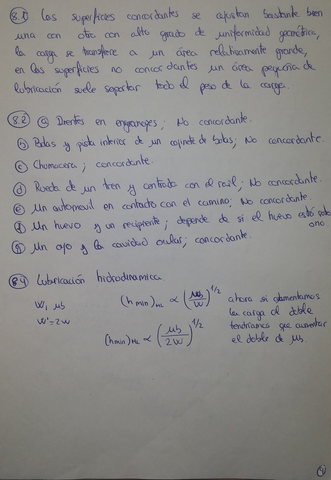 8.1 Las superficies concordantes se ajustan bastante bien
una con otra con alto grado de uniformidad geométrica,
la carga se transfiere a un área relativamente grande,
en las superficies no concordantes un área pequeña de
lubricación suele soportar todo el peso de la carga.
8.2 a Dientes en engranajes; No concordante.
b Bolas y pista interior de un cojinete de bolas; No concordante.
c Chumacera; concordante.
d Rueda de un tren y contacto con el raíl; No concordante.
e Un automovil en contacto con el camino; No concordante
f Un huevo y un recipiente; depende de si el huevo está
o no.
g Un ojo y la cavidad ocular; concordante.
8.4 Lubricación hidrodinamica
W, μb
W'=2W
(h min)HL ∝ (μb/W)^1/2
(h min)HL ∝ (μb/2W)^1/2
ahora si aumentamos
la carga al doble
tendriamos que aumentar
el doble de μb.